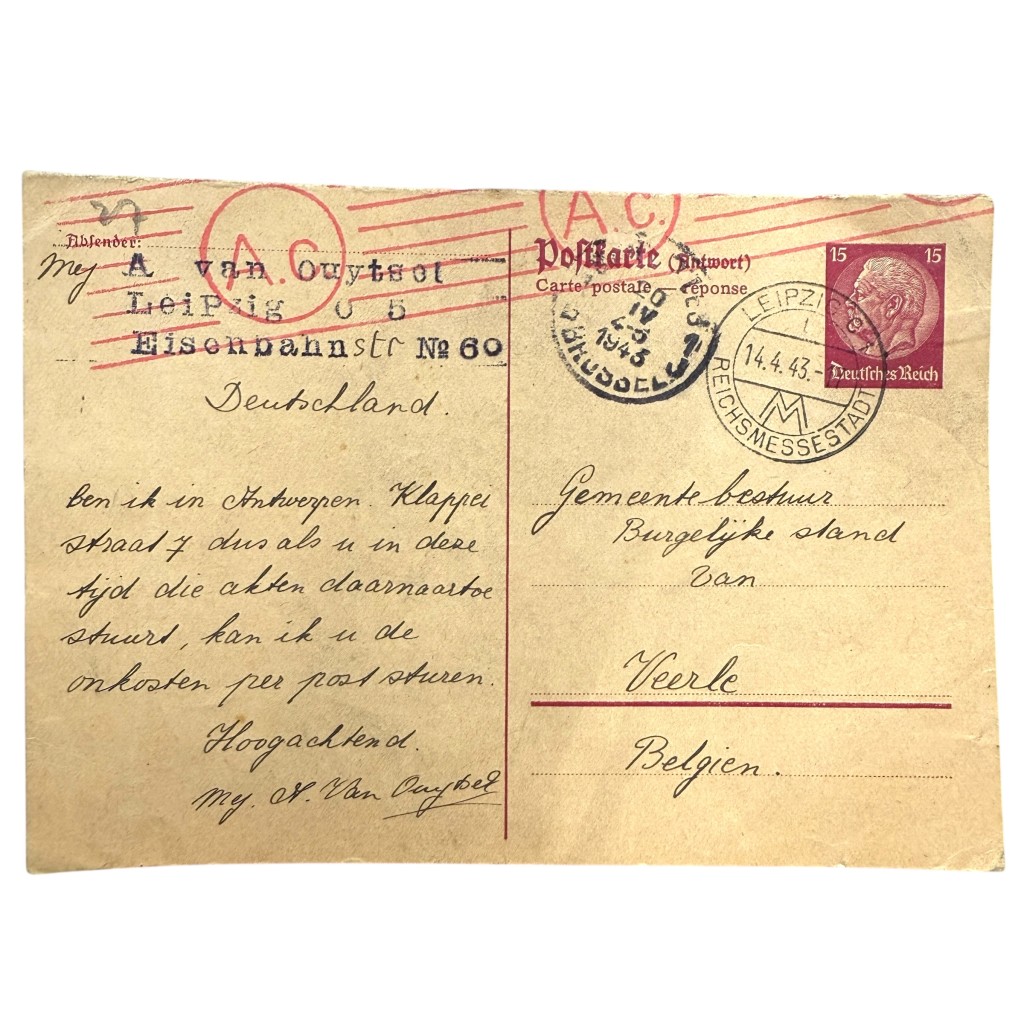 27
A.C.
A.C.
Absender:
Mej A van Ouytsel
Leipzig O 5
Eisenbahnstr No 60
Deutschland.
ben ik in Antwerpen. Klappei
straat 7 dus als u in deze
tijd die akten daarnaartoe
stuurt, kan ik u de
onkosten per post sturen.
Hoogachtend.
Mej. A. Van Ouytsel
Postkarte (Antwort)
Carte postale — réponse
1
BRUSSEL
IV
1943
15 15
Deutsches Reich
LEIPZIG
14.4.43.
M
REICHSMESSESTADT
Gemeentebestuur
Burgelijke stand
van
Veerle
Belgien.